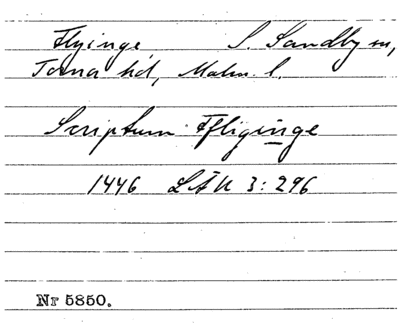 Flyinge S. Sandby sn,
Torna hd, Malm. l.
Scriptum Ffliginge
1446 LÄU 3:296
Nr 5850.